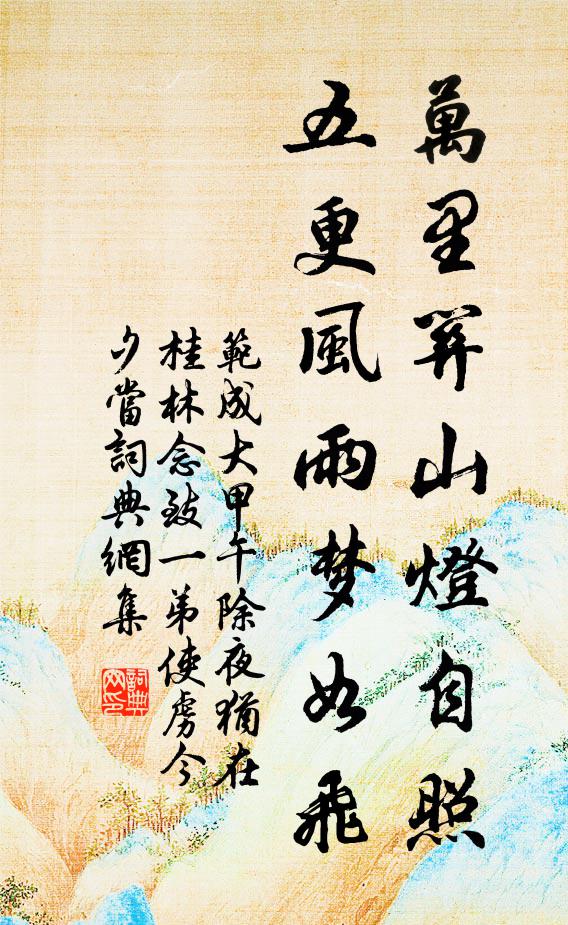 萬里關山燈自照
五更風雨梦如飛
範成大甲午除夜猶在
桂林念致一弟使虜今
夕當詞典網集
詞典网印